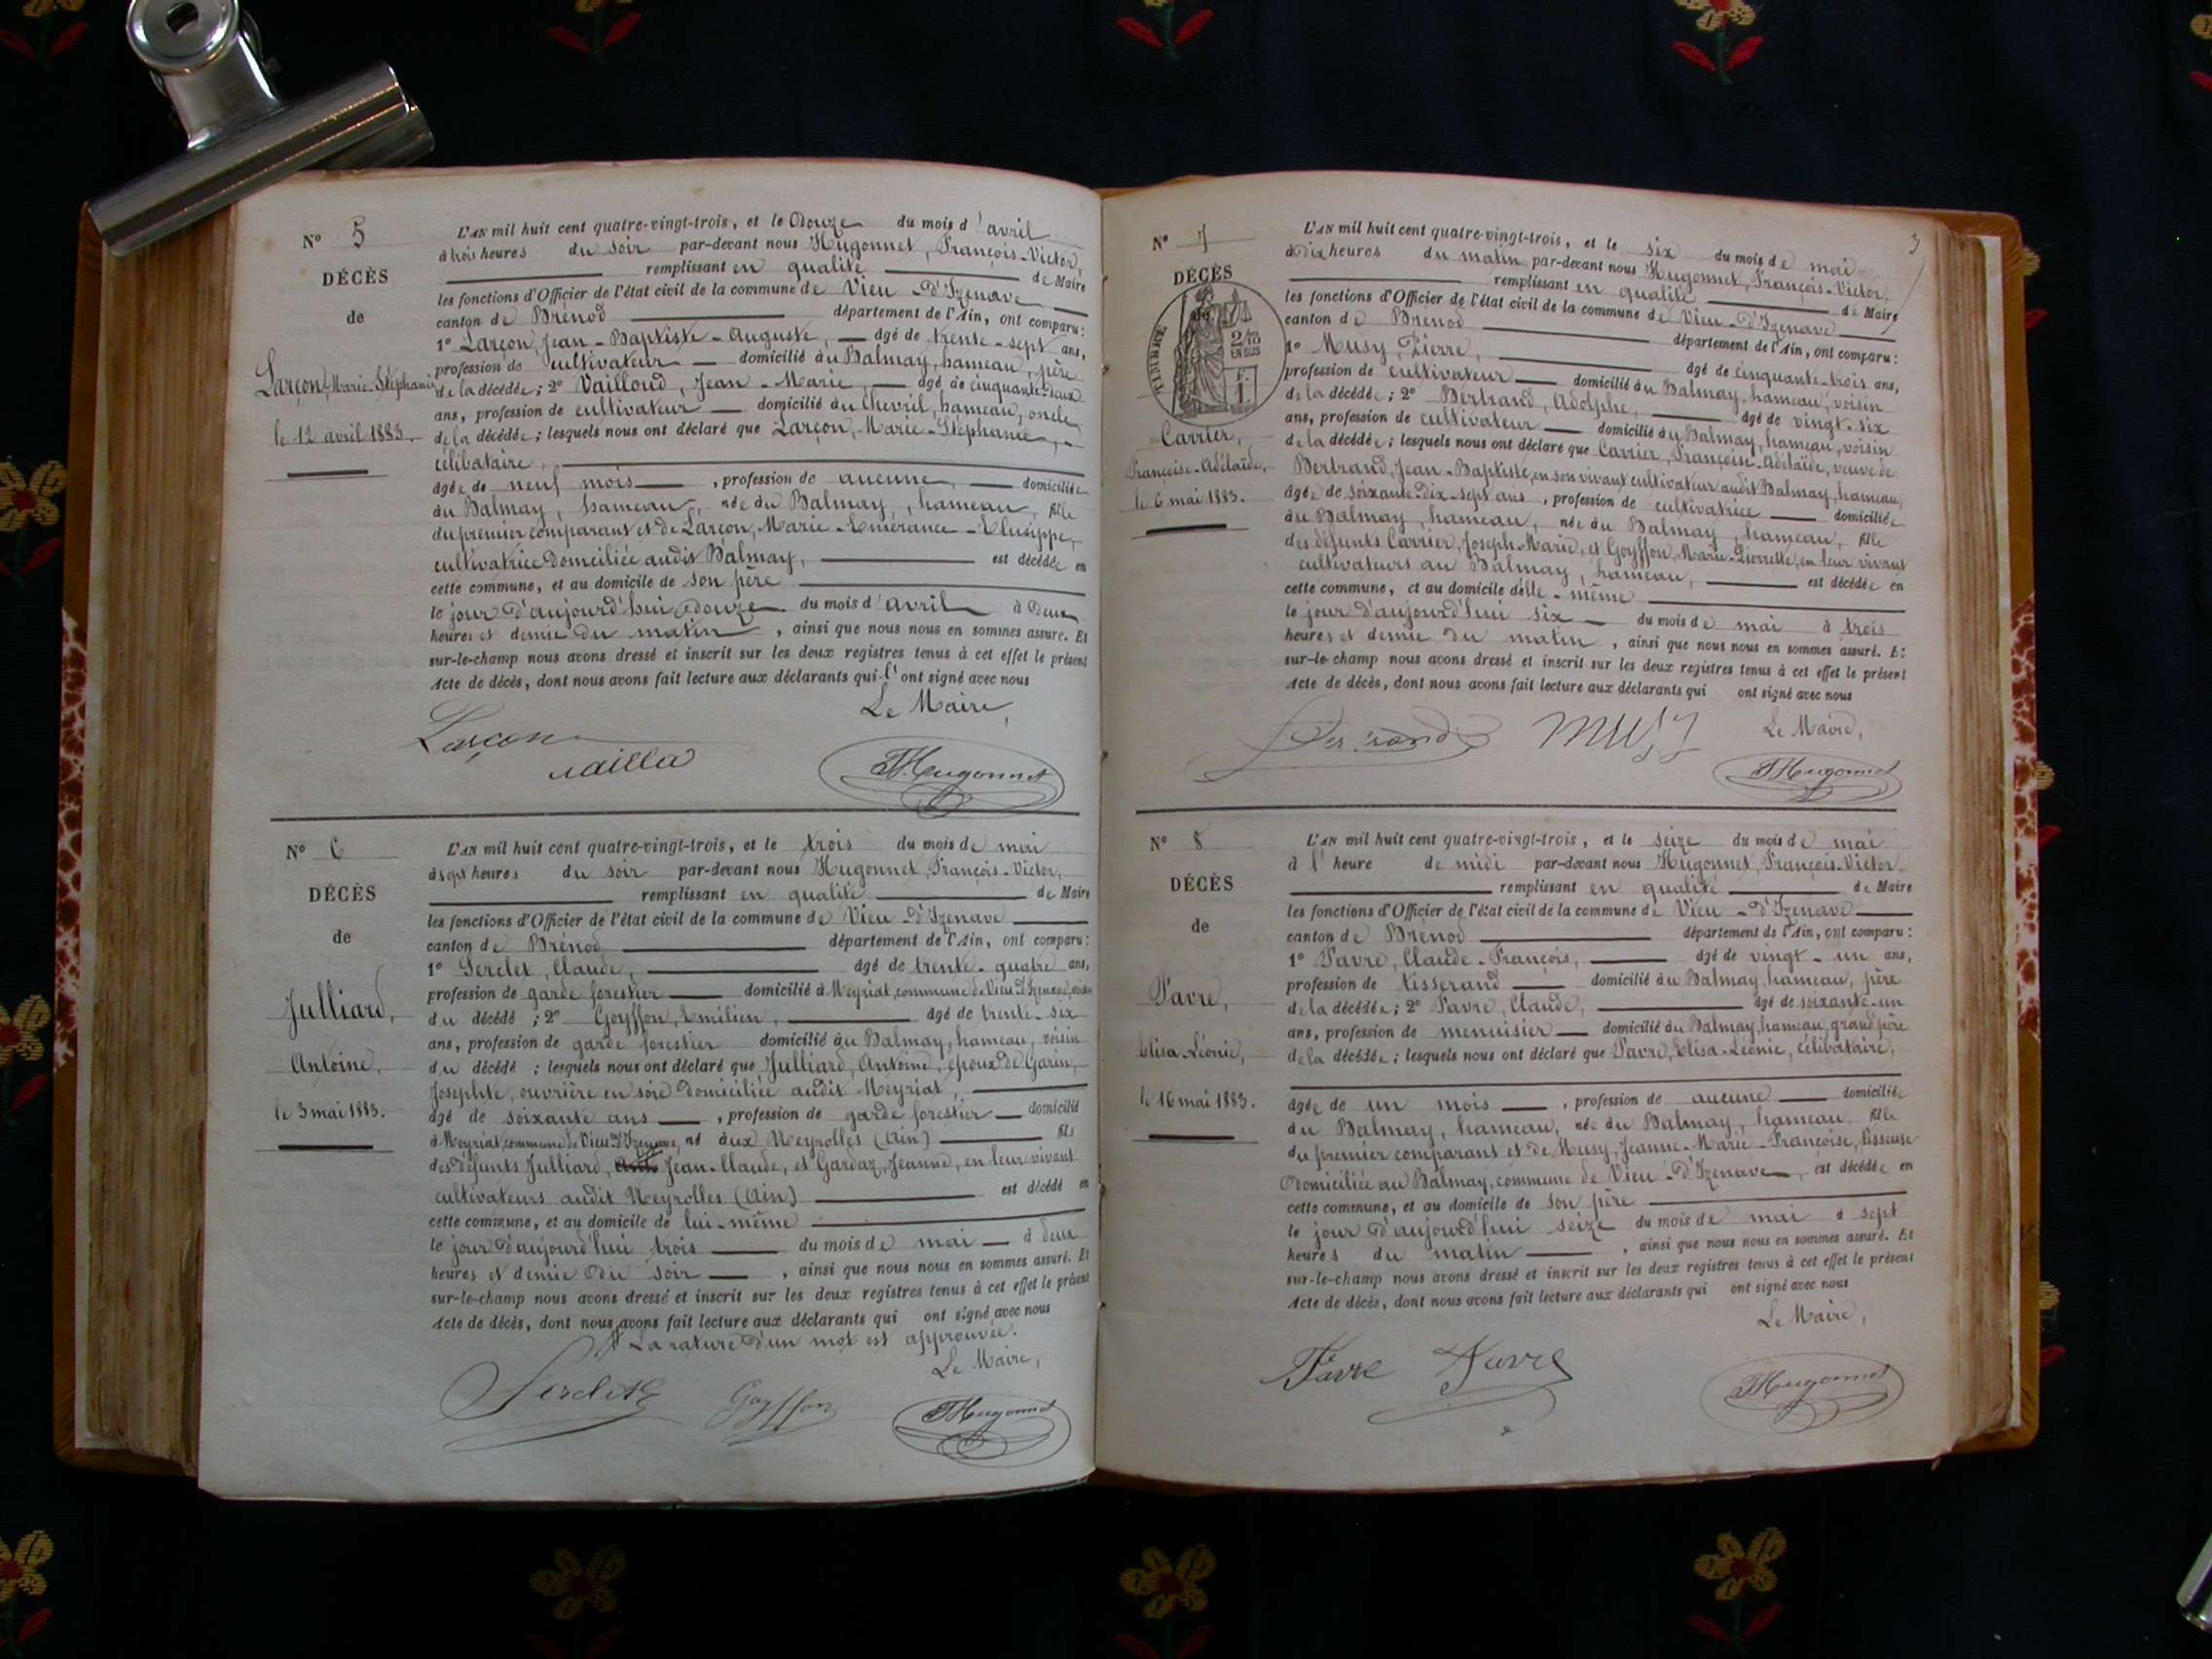 N° 5
DÉCÈS
de
Larçon, Marie-Stéphanie
le 12 avril 1883.
L'AN mil huit cent quatre-vingt-trois, et le Douze du mois d'avril
à trois heures du soir par-devant nous Hugonnet, François-Victor,
remplissant en qualité de Maire
les fonctions d'Officier de l'état civil de la commune de Vieu-d'Izenave
canton de Brénod département de l'Ain, ont comparu:
1° Larçon, Jean-Baptiste-Auguste, âgé de trente-sept ans,
profession de cultivateur domicilié au Balmay, hameau, père
de la décédée; 2° Vailloud, Jean-Marie, âgé de cinquante-deux
ans, profession de cultivateur domicilié au Chevril, hameau, oncle
de la décédée; lesquels nous ont déclaré que Larçon, Marie-Stéphanie,
célibataire,
âgée de neuf mois, profession de aucune, domiciliée
au Balmay, hameau, née au Balmay, hameau, fille
du premier comparant et de Larçon, Marie-Emérance-Elusippe,
cultivatrice domiciliée audit Balmay, est décédée en
cette commune, et au domicile de son père
le jour d'aujourd'hui douze du mois d'avril à deux
heures et demie du matin, ainsi que nous nous en sommes assuré. Et
sur-le-champ nous avons dressé et inscrit sur les deux registres tenus à cet effet le présent
Acte de décès, dont nous avons fait lecture aux déclarants qui l'ont signé avec nous
Le Maire,
Larçon
FHugonnet
N° 6
DÉCÈS
de
Julliard,
Antoine,
le 3 mai 1883.
L'AN mil huit cent quatre-vingt-trois, et le trois du mois de mai
à sept heures du soir par-devant nous Hugonnet, François-Victor,
remplissant en qualité de Maire
les fonctions d'Officier de l'état civil de la commune de Vieu-d'Izenave
canton de Brénod département de l'Ain, ont comparu:
1° Serclet, Claude, âgé de trente-quatre ans,
profession de garde forestier domicilié à Meyriat, commune de Vieu d'Izenave, voisin
du décédé; 2° Goyffon, Emilien, âgé de trente-six
ans, profession de garde forestier domicilié au Balmay, hameau, voisin
du décédé; lesquels nous ont déclaré que Julliard, Antoine, époux de Garin,
Josephte, ouvrière en soie domiciliée audit Meyriat,
âgé de soixante ans, profession de garde forestier domicilié
à Meyriat, commune de Vieu d'Izenave, né aux Neyrolles (Ain) fils
des défunts Julliard, Jean-Claude, et Gardaz, Jeanne, en leur vivant
cultivateurs audit Neyrolles (Ain) est décédé en
cette commune, et au domicile de lui-même
le jour d'aujourd'hui trois du mois de mai à deux
heures et demie du soir, ainsi que nous nous en sommes assuré. Et
sur-le-champ nous avons dressé et inscrit sur les deux registres tenus à cet effet le présent
Acte de décès, dont nous avons fait lecture aux déclarants qui ont signé avec nous
La rature d'un mot est approuvée.
Le Maire,
Serclet Goyffon FHugonnet
3
N° 7
DÉCÈS
de
TIMBRE
2/10
EN SUS
F.
1.
Carrier,
Françoise-Adélaïde,
le 6 mai 1883.
L'AN mil huit cent quatre-vingt-trois, et le six du mois de mai
à dix heures du matin par-devant nous Hugonnet, François-Victor,
remplissant en qualité de Maire
les fonctions d'Officier de l'état civil de la commune de Vieu-d'Izenave
canton de Brénod département de l'Ain, ont comparu:
1° Musy, Pierre, âgé de cinquante-trois ans,
profession de cultivateur domicilié au Balmay, hameau, voisin
de la décédée; 2° Bertrand, Adolphe, âgé de vingt-six
ans, profession de cultivateur domicilié au Balmay, hameau, voisin
de la décédée; lesquels nous ont déclaré que Carrier, Françoise-Adélaïde, veuve de
Bertrand, Jean-Baptiste, en son vivant cultivateur audit Balmay, hameau,
âgée de soixante-dix-sept ans, profession de cultivatrice domiciliée
au Balmay, hameau, née au Balmay, hameau, fille
des défunts Carrier, Joseph-Marie, et Goyffon, Marie-Pierrette, en leur vivant
cultivateurs au Balmay, hameau, est décédée en
cette commune, et au domicile d'elle-même
le jour d'aujourd'hui six du mois de mai à trois
heures et demie du matin, ainsi que nous nous en sommes assuré. Et
sur-le-champ nous avons dressé et inscrit sur les deux registres tenus à cet effet le présent
Acte de décès, dont nous avons fait lecture aux déclarants qui ont signé avec nous
Le Maire,
Bertrand MUSY
FHugonnet
N° 8
DÉCÈS
de
Favre,
Elisa-Léonie,
le 16 mai 1883.
L'AN mil huit cent quatre-vingt-trois, et le seize du mois de mai
à l'heure de midi par-devant nous Hugonnet, François-Victor,
remplissant en qualité de Maire
les fonctions d'Officier de l'état civil de la commune de Vieu-d'Izenave
canton de Brénod département de l'Ain, ont comparu:
1° Favre, Claude-François, âgé de vingt-un ans,
profession de tisserand domicilié au Balmay, hameau, père
de la décédée; 2° Favre, Claude, âgé de soixante-un
ans, profession de menuisier domicilié au Balmay, hameau, grand père
de la décédée; lesquels nous ont déclaré que Favre, Elisa-Léonie, célibataire,
âgée de un mois, profession de aucune domiciliée
au Balmay, hameau, née au Balmay, hameau, fille
du premier comparant et de Musy, Jeanne-Marie-Françoise, tisseuse
domiciliée au Balmay, commune de Vieu-d'Izenave, est décédée en
cette commune, et au domicile de son père
le jour d'aujourd'hui seize du mois de mai à sept
heures du matin, ainsi que nous nous en sommes assuré. Et
sur-le-champ nous avons dressé et inscrit sur les deux registres tenus à cet effet le présent
Acte de décès, dont nous avons fait lecture aux déclarants qui ont signé avec nous
Le Maire,
Favre Favre
FHugonnet